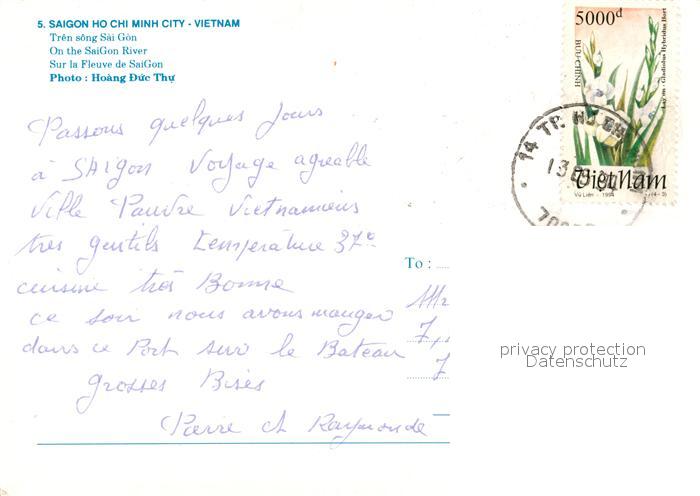 5. SAIGON HO CHI MINH CITY - VIETNAM
Trên sông Sài Gòn
On the SaiGon River
Sur la Fleuve de SaiGon
Photo : Hoàng Đức Thự
5000đ
BƯU CHÍNH
Lay ơn - Gladiolus Hybridus Hort
Việt Nam
Vũ Liên - 1994 (4-3)
14 TP. HO CHI
13
700
Passons quelques Jours
à SAIgon Voyage agreable
Ville Pauvre Vietnamiens
tres gentils température 37°
cuisine très Bonne
ce soir nous avons manger
dans ce Port sur le Bateau
grosses Bises
Pierre et Raymonde
To :
privacy protection
Datenschutz